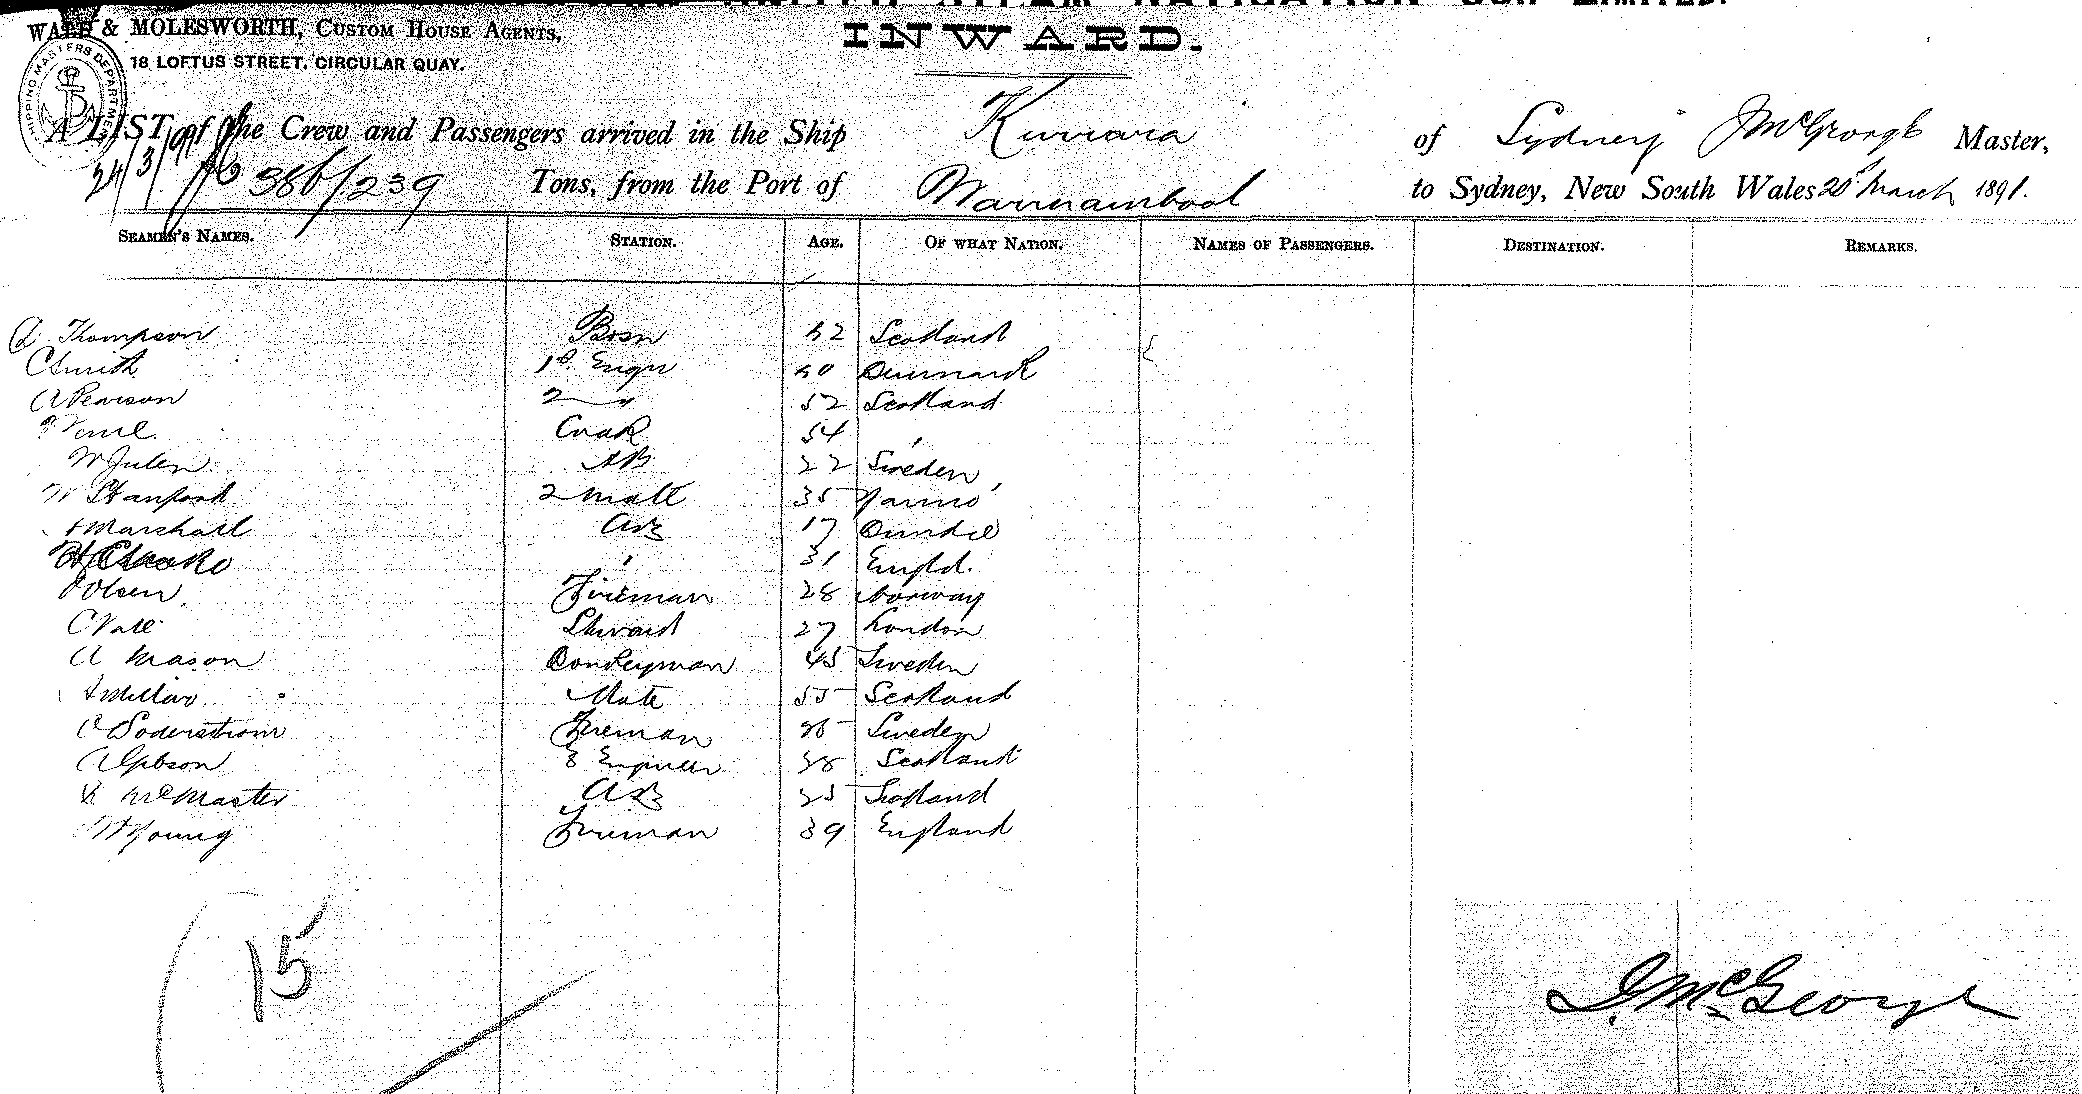 LIMITED.
WALE & MOLESWORTH, CUSTOM HOUSE AGENTS,
18 LOFTUS STREET, CIRCULAR QUAY.
INWARD.
SHIPPING MASTERS DEPARTMENT
A LIST of the Crew and Passengers arrived in the Ship Kurrara of Sydney J McGeorge Master,
24/3/91 386/239 Tons, from the Port of Warrnambool to Sydney, New South Wales March 1891.
SEAMEN'S NAMES. STATION. AGE. OF WHAT NATION. NAMES OF PASSENGERS. DESTINATION. REMARKS.
Thompson Bosn 52 Scotland
C Smith 1st Engr Denmark
A Pearson 2 " 52 Scotland
Cook 54
W Julen AB 22 Sweden
Stanford 2 Mate 35
Marshall AB 17 Dundee
H Clarke 31 Engld.
Olsen Fireman 28 Norway
C Vale Steward 27 London
A Mason Donkeyman 45 Sweden
Millar Mate 55 Scotland
Soderstrom Fireman Sweden
A Gibson 3 Engineer 38 Scotland
McMaster AB 25 Scotland
W Young Fireman 39 England
15
J. McGeorge